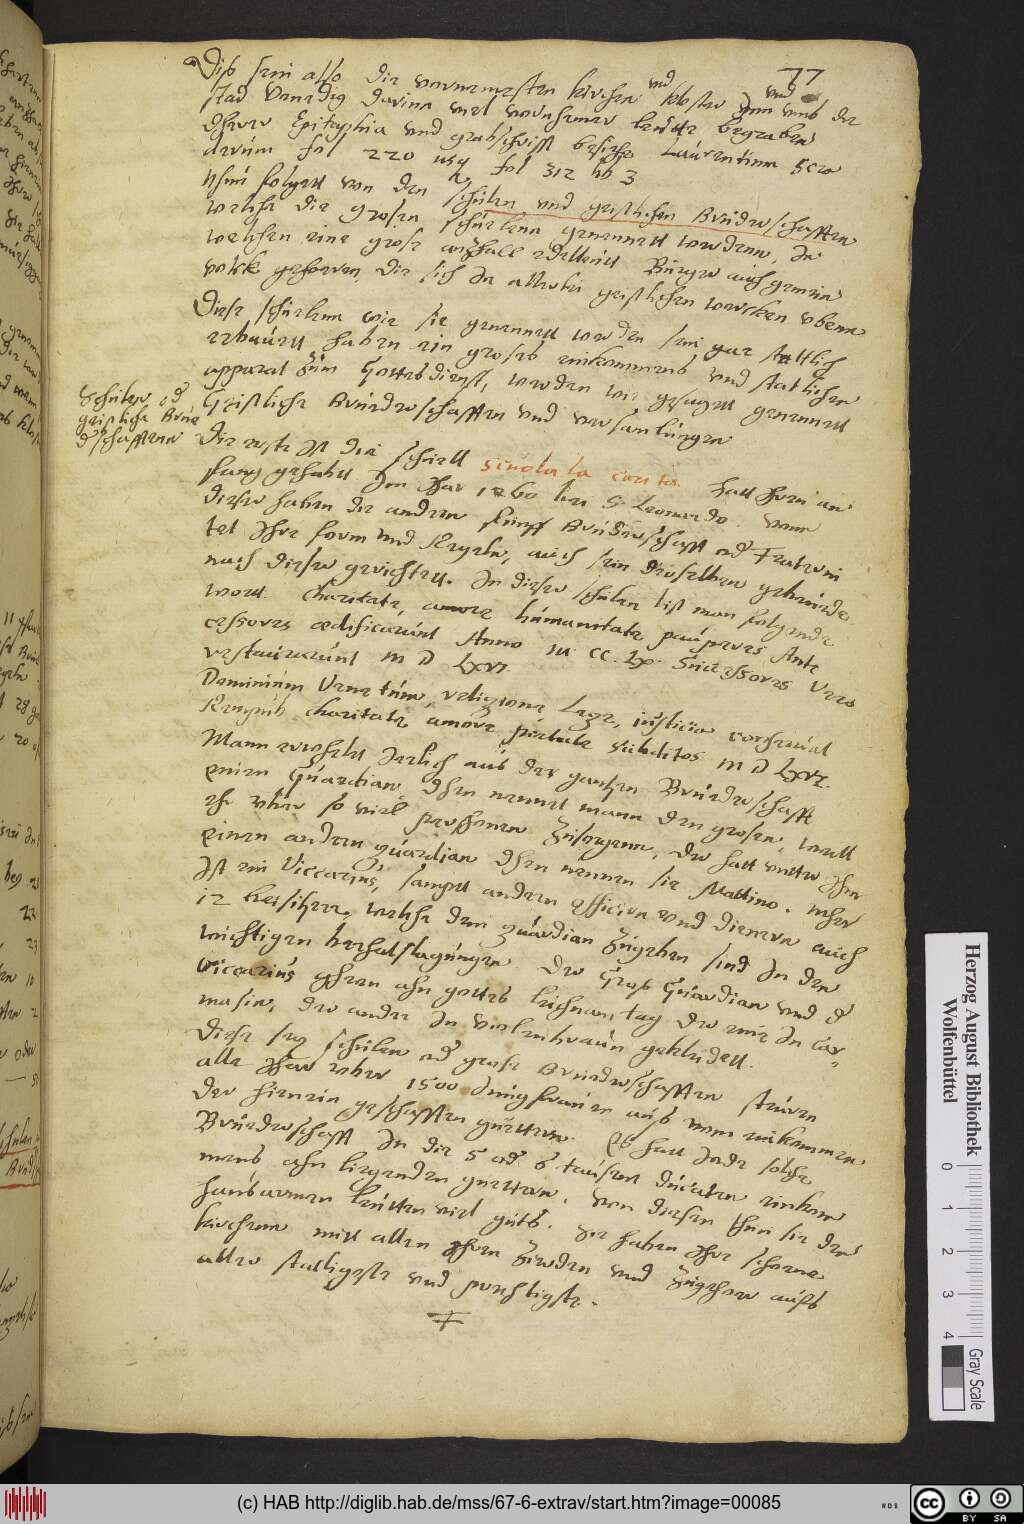 77
Diß sein also die vornemesten kirchen und Kloster von und umb der
stad Venedig darinn viel vornehmer leutte begraben
derer Epitaphia und grabschrifft besiehe Laurentium Scra
derum fol 220 usq fol 312 lib 3
Nhun folgett von den Schulen und geistlichen Bruderschafften
welche die grosen schuelenn genennett werdenn, In
welchen eine grose anzhall edelleutt Bürger auch gemein
volck gehorren, die sich In allerlei geistlichen wercken ubenn
Diese schuelenn wie sie genennett werden sein gar stattlich
erbauett haben ein groses einkommens und statlichen
apparat zum Gottesdienst, werden wie gesagett genennett
Geistliche Bruederschafften und versamlungen
Schulen, od
geistliche Brue
derschafftenn
Die erste Ist die schuell scuola la carita. hatt Ihren an
fang gehabtt Im Ihar 1260 bei S. Leonardo. vonn
dieser haben die andern funff Bruderschafft od Fraterni
tet Ihre form und Regeln, auch sein dieselben gebeude
nach dieser gerichtett. In dieser schulen list man folgende
wort. Charitate, amore humanitate pauperes Ante
cessores aedificarunt Anno M CC LX. Successores vero
restaurarunt M D LXVI
Dominium Venetum, religione Lege, iusticia conservat
Remqub charitate amore pietate subditos M D LXVI.
Mann erwehlett Jerlich aus der gantzen Bruederschafft
einen Guardian, dhen nennet mann den grosen, weill
ehr uber so viel personen zusorgenn, der hatt unter Ihm
einen andern guardian dhen nennen sie Mattino. Mher
Ist ein Viccarius, sampt andern officirn und dienern auch
12 beisitzer, welche dem guardian zugeben sind In den
wichtigen berhatslagungen der Gros Guardian und d
viccarius gehen ahn gottes leichnam tag der eine In Car-
masin, der ander In violenbraun gekleidett.
Diese sex schulen od grose Bruederschafften steuren
alle Ihar uber 1500 Jungfrauen aus vom einkommen
der hierein geschafften guettern. Es hatt Jede solche
Bruederschafft In die 5 od 6 tausent ducaten einkom
mens ahn liegenden guettern. von diesen thun sie den
hausarmen leutten viel guts. Sie haben Ihre schone
kirchenn mitt allen Ihren Zierden und zugehor aufs
aller stattligste und prechtigste.
Herzog August Bibliothek
Wolfenbüttel
0 1 2 3 4
Gray Scale
(c) HAB http://diglib.hab.de/mss/67-6-extrav/start.htm?image=00085
WDB
CC BY SA